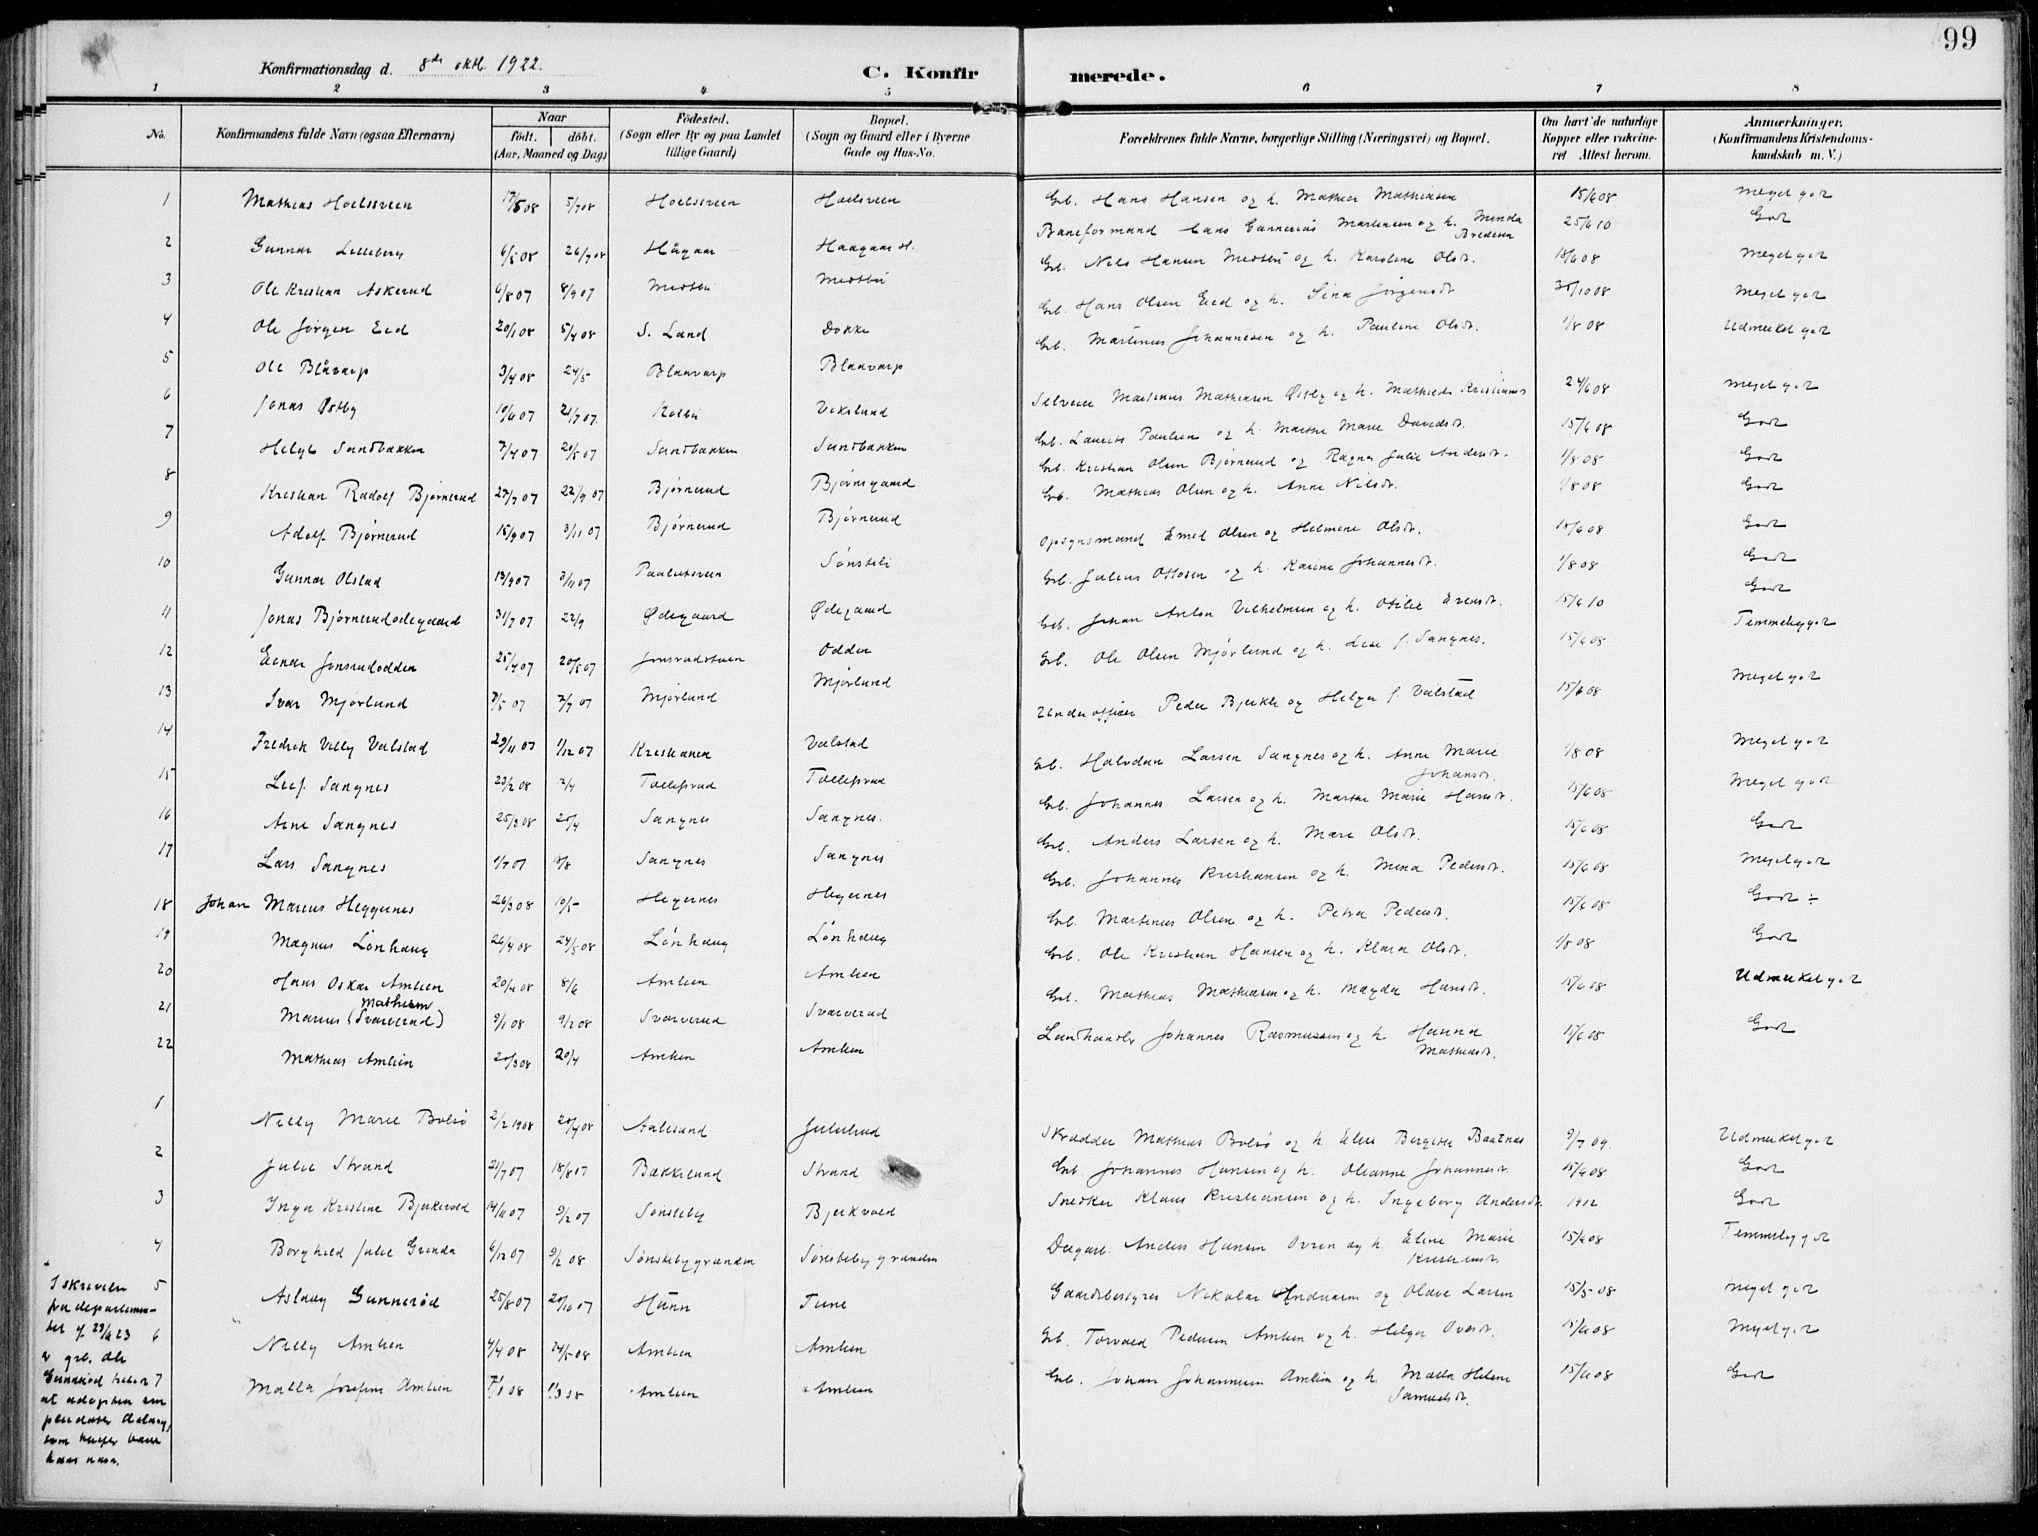 99
Konfirmationsdag d. 8de okt. 1922.
C. Konfirmerede.
1 2 3 4 5 6 7 8
No.
Konfirmandens fulde Navn (ogsaa Efternavn)
Naar
födt. döbt.
(Aar, Maaned og Dag)
Födested.
(Sogn eller By og paa Landet
tillige Gaard)
Bopæl.
(Sogn og Gaard eller i Byerne
Gade og Hus-No.
Forældrenes fulde Navne, borgerlige Stilling (Næringsvei) og Bopæl.
Om havt de naturlige
Kopper eller vakcine-
ret Attest herom.
Anmærkninger,
(Konfirmandens Kristendoms-
kundskab m. V.)
1 Mathias Hoelsveen 17/5 08 5/7 08 Hoelsveen Hoelsveen Grb. Hans Hansen og h. Mathea Mathiasen 15/6 08 Meget godt
2 Gunnar Lilleberg 6/5 08 26/7 08 Hågaar Haagaar Baneformand Hans Gunnerius Martinsen og h. Minda Bredesen 25/6 10 Godt
3 Ole Kristian Askerud 6/8 07 8/9 07 Medsbu Medsbu Grb. Nils Hansen Medsbu og h. Karoline Olsdt. 18/6 08 Meget godt
4 Ole Jørgen Eid 20/1 08 5/4 08 S. Land Dokke Grb. Hans Olsen Eid og h. Sina Jørgensdt. 30/10 08 Meget godt
5 Ole Blåvarp 3/4 08 24/5 Blaavarp Blaavarp Grb. Martinus Johannesen og h. Pauline Olsdt. 1/8 08 Udmerket godt
6 Jonas Østby 10/6 07 21/7 07 Kolbu Vekslund Selveier Martinus Mathiasen Østby og h. Mathilde Kristiansdt. 24/6 08 Meget godt
7 Helge Sandbakken 7/4 07 20/5 07 Sandbakken Sandbakken Grb. Laurits Paulsen og h. Marthe Marie Davidsdt. 15/6 08 Godt
8 Kristian Radolf Bjørnerud 27/7 07 22/9 07 Bjørnerud Bjørnsgaard Grb. Kristian Olsen Bjørnerud og Ragna Julie Andersdt. 1/8 08 Godt
9 Adolf Bjørnerud 15/9 07 3/11 07 Bjørnerud Bjørnerud Grb. Mathias Olsen og h. Anne Nilsdt. 1/8 08 Godt
10 Gunnar Olstad 13/9 07 3/11 07 Paalerud Sønsteli Opsynsmand Emil Olsen og Helmine Olsdt. 15/6 08 Godt
11 Jonas Bjørnerudødegaard 31/7 07 22/9 Ødegaard Ødegaard Grb. Julius Ottosen og h. Karine Johannesdt. 1/8 08 Godt
12 Einar Jonsrudodden 25/4 07 20/5 07 Jonsrudstuen Odden Grb. Johan Anton Vilhelmsen og h. Otilie Evensdt. 15/6 10 Godt
13 Ivar Mjørlund 7/5 07 7/7 07 Mjørlund Mjørlund Grb. Ole Olsen Mjørlund og h. Lise f. Sangnes. 15/6 08 Temmelig godt
14 Fredrik Villy Valstad 29/11 07 1/12 07 Kristiania Valstad Underofficer Peder Bjerkli og Helga f. Valstad 15/6 08 Meget godt
15 Leif Sangnes 23/2 08 12/4 Tollefsrud Tollefsrud Grb. Halvdan Larsen Sangnes og h. Anne Marie Johansdt. 1/8 08 Meget godt
16 Arne Sangnes 25/3 08 20/4 Sangnes Sangnes. Grb. Johannes Larsen og h. Marthe Marie Hansdt. 15/6 08 Meget godt
17 Lars Sangnes 1/7 07 18/8 Sangnes Sangnes Grb. Anders Larsen og h. Mari Olsdt. 15/6 08 Godt
18 Johan Marius Heggernes 26/3 08 10/5 Hegernes Hegernes Grb. Johannes Kristiansen og h. Mina Pedersdt. 15/6 08 Meget godt
19 Magnus Lönhaug 26/4 08 24/5 08 Lönhaug Lönhaug Grb. Martinus Olsen og h. Petra Pedersdt. 15/6 08 Godt ÷
20 Hans Oskar Amlien 20/4 08 8/6 Amlien Amlien Grb. Ole Kristian Hansen og h. Klara Olsdt. 1/8 08 Godt
21 Marius Mathisen (Svarverud) 9/1 08 9/2 08 Svarverud Svarverud Grb. Mathias Mathiasen og h. Magda Hansdt. 15/6 08 Udmerket godt
22 Mathias Amlien 20/3 08 20/4 Amlien Amlien Landhandler Johannes Rasmussen og h. Hanna Mathiasdt. 15/6 08 Godt
1 Nelly Marie Bolsö 2/2 1908 20/4 08 Aalesund Julelund Skrædder Mathias Bolsö og h. Eline Bergitte Baatnes 9/7 09. Udmerket godt
2 Julie Strand 21/7 07 18/8 07 Bakkelund Strand Grb. Johannes Hansen og h. Oleanne Johannesdt. 15/6 08 Godt
3 Inga Kristine Bjerkvold 14/11 07 9/2 07 Sønsteby Bjerkvold Snedker Klaus Kristiansen og h. Ingeborg Andersdt. 1912 Godt
4 Borghild Julie Granda 6/12 07 9/2 08 Sønstebygranden Sønstebygranden Dagarb. Anders Hansen Ovren og h. Eline Marie Kristiansdt. 15/6 08 Temmelig godt
5 Aslaug Gunneröd 25/8 07 20/10 07 Hunn Tune Gaardsbestyrer Nikolai Andersen og Olave Larsen 15/5 08 Meget godt
6 Nelly Amlien 4/4 08 24/5 08 Amlien Amlien Grb. Torvald Pedersen Amlien og h. Helga Oversdt. 15/6 08 Meget godt
7 Malla Josefine Amlien 7/1 08 1/3 08 Amlien Amlien Grb. Johan Johannesen Amlien og h. Malla Helene Samuelsdt. 15/6 08 Godt
I skrivelse
fra departemen-
tet af 23/6 23
er grb. Ole
Gunneröd
at adoptere sin
pleiedatter Aslaug,
som
hans navn.